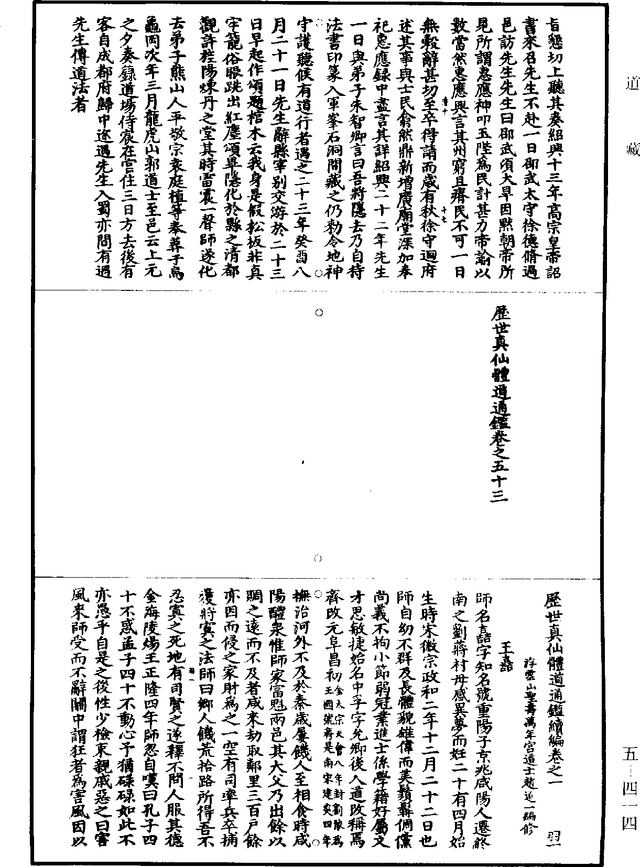 道藏
旨懇切上聽其奏紹興十三年高宗皇帝詔
書來召先生不赴一日邵武太守徐德脩過
邑訪先生先生曰邵武頃大旱因黙朝帝所
見所謂惠應神叩玉陛為民計甚力帝諭以
數當然惠應興言其州窮且瘠民不可一日
無穀辭甚切至卒得請而歲有秋徐守迴府
述其事與士民翕然鼎新增廣廟堂深加奉
祀惠應錄中盡言其詳紹興二十二年先生
一日與弟子朱智卿言曰吾將隱去乃自持
法書印篆入軍峯石洞間藏之仍勑令地神
守護聽候有道行者遇之二十三年癸酉八
月二十一日先生辭縣宰別交游於二十三
日早起作頌題棺木云我身是假松板非真
牢籠俗眼跳出紅塵頌畢隱化於縣之清都
觀許旌陽煉丹之堂其時雷震一聲師遂化
去弟子熊山人平敬宗袁庭植等奉葬于烏
龜岡次年三月龍虎山郭道士至邑云上元
之夕奏籙道場侍宸在宮住三日方去後有
客自成都府歸中途遇先生入蜀亦間有遇
先生傳道法者
歷世真仙體道通鑑卷之五十三
歷世真仙體道通鑑續編卷之一
浮雲山聖壽萬年宮道士趙道一編修
王嚞
師名嚞字知名號重陽子京兆咸陽人遷終
南之劉蔣村母感異夢而妊二十有四月始
生時宋徽宗政和二年十二月二十二日也
師自幼不群及長體貌雄偉而美鬚髯倜儻
尚義不拘小節弱冠業進士係學籍好屬文
才思敏捷始名中孚字允卿後入道改稱焉
齊改元阜昌初金太宗天會八年封劉豫為王國號齊是南宋建炎四年
撫治河外不及於秦歲屢饑人至相食時咸
陽醴泉惟師家富魁兩邑其大父乃出餘以
賙之遠而不及者咸來劫取鄰里三百戶餘
亦因而侵之家財為之一空有司率兵卒捕
獲將寘之法師曰鄉人饑荒拾路所得吾不
忍寘之死地有司賢之遂釋不問人服其德
金海陵煬王正隆四年師忽自嘆曰孔子四
十不惑孟子四十不動心予猶碌碌如此不
亦愚乎自是之後性少檢束親戚惡之曰害
風來師受而不辭關中謂狂者為害風因以
五-四一四